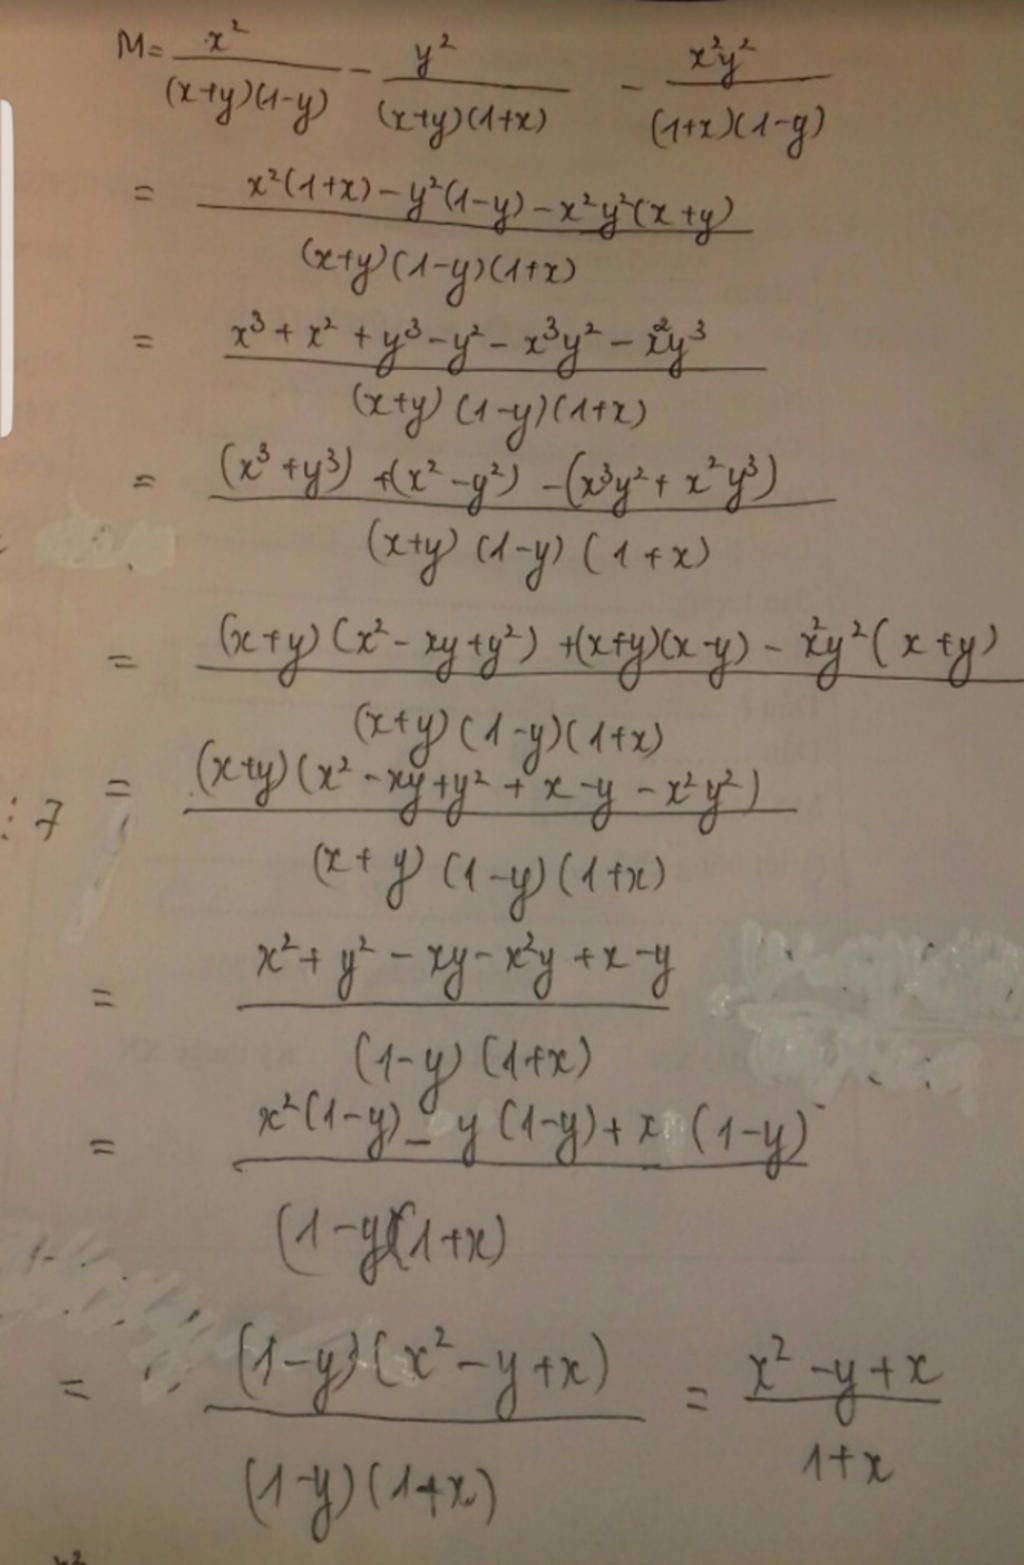 M = \frac{x^2}{(x+y)(1-y)} - \frac{y^2}{(x+y)(1+x)} - \frac{x^2y^2}{(1+x)(1-y)}
= \frac{x^2(1+x) - y^2(1-y) - x^2y^2(x+y)}{(x+y)(1-y)(1+x)}
= \frac{x^3 + x^2 + y^3 - y^2 - x^3y^2 - x^2y^3}{(x+y)(1-y)(1+x)}
= \frac{(x^3+y^3) + (x^2-y^2) - (x^3y^2 + x^2y^3)}{(x+y)(1-y)(1+x)}
= \frac{(x+y)(x^2-xy+y^2) + (x+y)(x-y) - x^2y^2(x+y)}{(x+y)(1-y)(1+x)}
⋮ 7 = \frac{(x+y)(x^2-xy+y^2+x-y-x^2y^2)}{(x+y)(1-y)(1+x)}
= \frac{x^2+y^2-xy-x^2y+x-y}{(1-y)(1+x)}
= \frac{x^2(1-y) - y(1-y) + x(1-y)}{(1-y)(1+x)}
= \frac{(1-y)(x^2-y+x)}{(1-y)(1+x)} = \frac{x^2-y+x}{1+x}